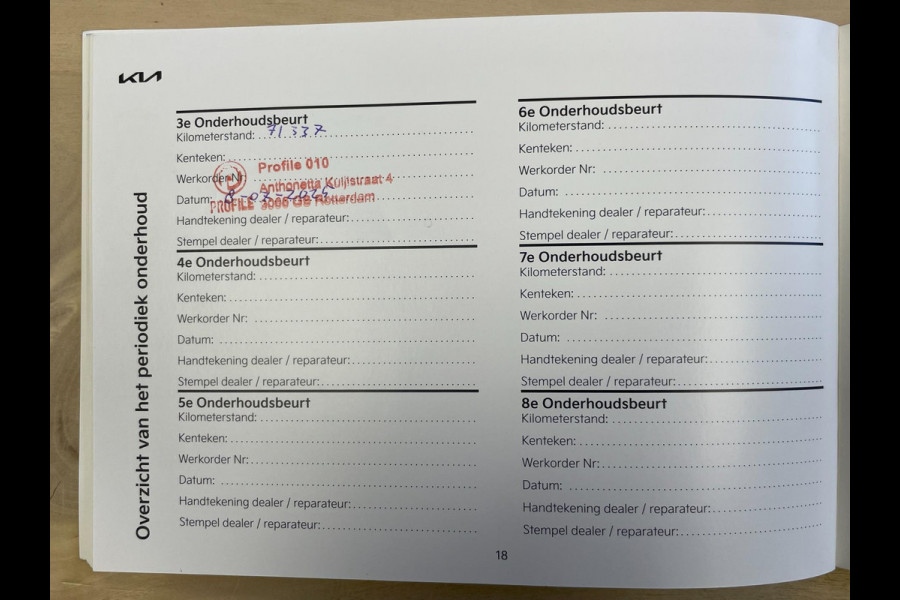 KIA
Overzicht van het periodiek onderhoud
3e Onderhoudsbeurt
Kilometerstand: 71.337
Kenteken:
Werkorder Nr:
Profile 010
Anthonetta Kuijlstraat 4
Datum: 8-03-2024
PROFILE 3066 GS Rotterdam
Handtekening dealer / reparateur:
Stempel dealer / reparateur:
4e Onderhoudsbeurt
Kilometerstand:
Kenteken:
Werkorder Nr:
Datum:
Handtekening dealer / reparateur:
Stempel dealer / reparateur:
5e Onderhoudsbeurt
Kilometerstand:
Kenteken:
Werkorder Nr:
Datum:
Handtekening dealer / reparateur:
Stempel dealer / reparateur:
6e Onderhoudsbeurt
Kilometerstand:
Kenteken:
Werkorder Nr:
Datum:
Handtekening dealer / reparateur:
Stempel dealer / reparateur:
7e Onderhoudsbeurt
Kilometerstand:
Kenteken:
Werkorder Nr:
Datum:
Handtekening dealer / reparateur:
Stempel dealer / reparateur:
8e Onderhoudsbeurt
Kilometerstand:
Kenteken:
Werkorder Nr:
Datum:
Handtekening dealer / reparateur:
Stempel dealer / reparateur:
18